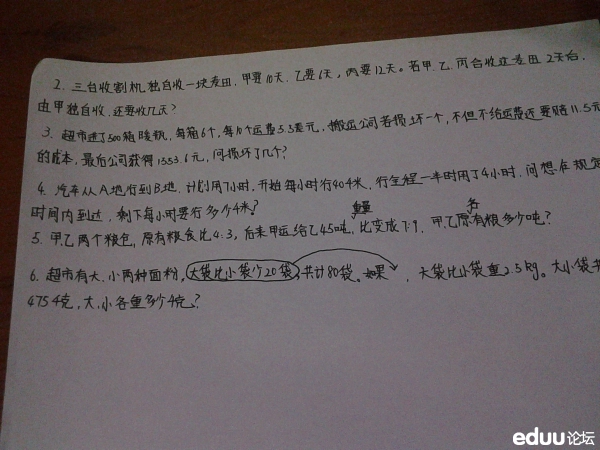 2. 三台收割机独自收一块麦田,甲要10天、乙要6天,丙要12天。若甲、乙、丙合收这麦田2天后,
由甲独自收,还要收几天?
3. 超市进了500箱暖瓶,每箱6个,每10个运费5.5元,搬运公司若损坏一个,不但不给运费还要赔11.5元
的成本,最后公司获得1353.6元,问损坏了几个?
4. 汽车从A地行到B地,计划用7小时.开始每小时行40千米,行全程一半时用了4小时,问想在规定
时间内到达,剩下每小时要行多少千米?
5. 甲乙两个粮仓,原有粮食比4:3,后来甲运给乙450吨,比变成7:9,甲乙原各有粮多少吨?
6. 超市有大、小两种面粉,大袋比小袋少20袋,共计80袋。如果,大袋比小袋重2.5kg。大小袋共
475千克,大、小各重多少千克?
eduu论坛